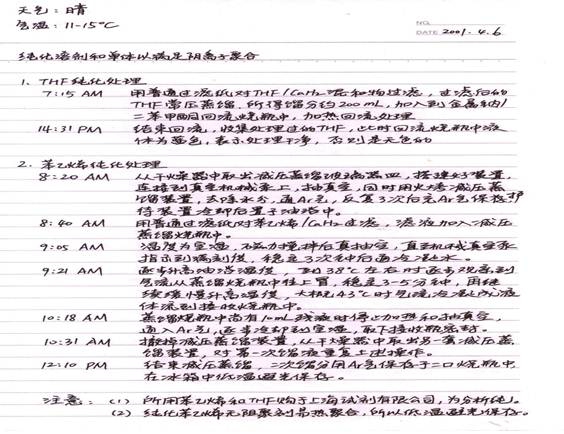 天气：晴
气温：11-15°C
NO.
DATE 2001.4.6
纯化溶剂和单体以满足阴离子聚合
1. THF纯化处理
7:15 AM 用普通过滤纸对THF/CaH₂混和物过滤，过滤后的
THF常压蒸馏，所得馏分约200 mL，加入到金属钠/
二苯甲酮回流烧瓶中，加热回流处理
14:31 PM 结束回流，收集处理过的THF，此时回流烧瓶中液
体为蓝色，表示处理干净，否则是无色的
2. 苯乙烯纯化处理
8:20 AM 从干燥器中取出减压蒸馏玻璃器皿，搭建好装置，
连接到真空机械泵上，抽真空，同时用火烤减压蒸
馏装置，去除水分，通Ar气，反复3次后充Ar气保存
待装置冷却后置于油浴中。
8:40 AM 用普通过滤纸对苯乙烯/CaH₂过滤，滤液加入减压
蒸馏烧瓶中。
9:05 AM 温度为室温，不磁力搅拌后真抽空，直至机械真空泵
指示到满刻度，稳定3次钟后通冷凝水。
9:21 AM 逐步升高油浴温度，到38°C左右时逐步观察到
气流从蒸馏烧瓶中往上冒，稳定3-5分钟，再继
续缓慢升高温度，大概在43°C时气流冷凝成液
体流到接收烧瓶中。
10:18 AM 蒸馏烧瓶中尚有10mL残液时停止加热和抽真空，
通入Ar气，逐步冷却到室温，取下接收瓶密封。
10:31 AM 撤掉减压蒸馏装置，从干燥器中取出另一套减压蒸
馏装置，对第一次馏液重复上述操作。
12:10 PM 结束减压蒸馏，二次馏分用Ar气保存于二口烧瓶中
在冰箱中低温避光保存。
注意：(1) 所用苯乙烯和THF购于上海试剂有限公司，为分析纯。
(2) 纯化苯乙烯无阻聚剂易热聚合，所以低温避光保存。